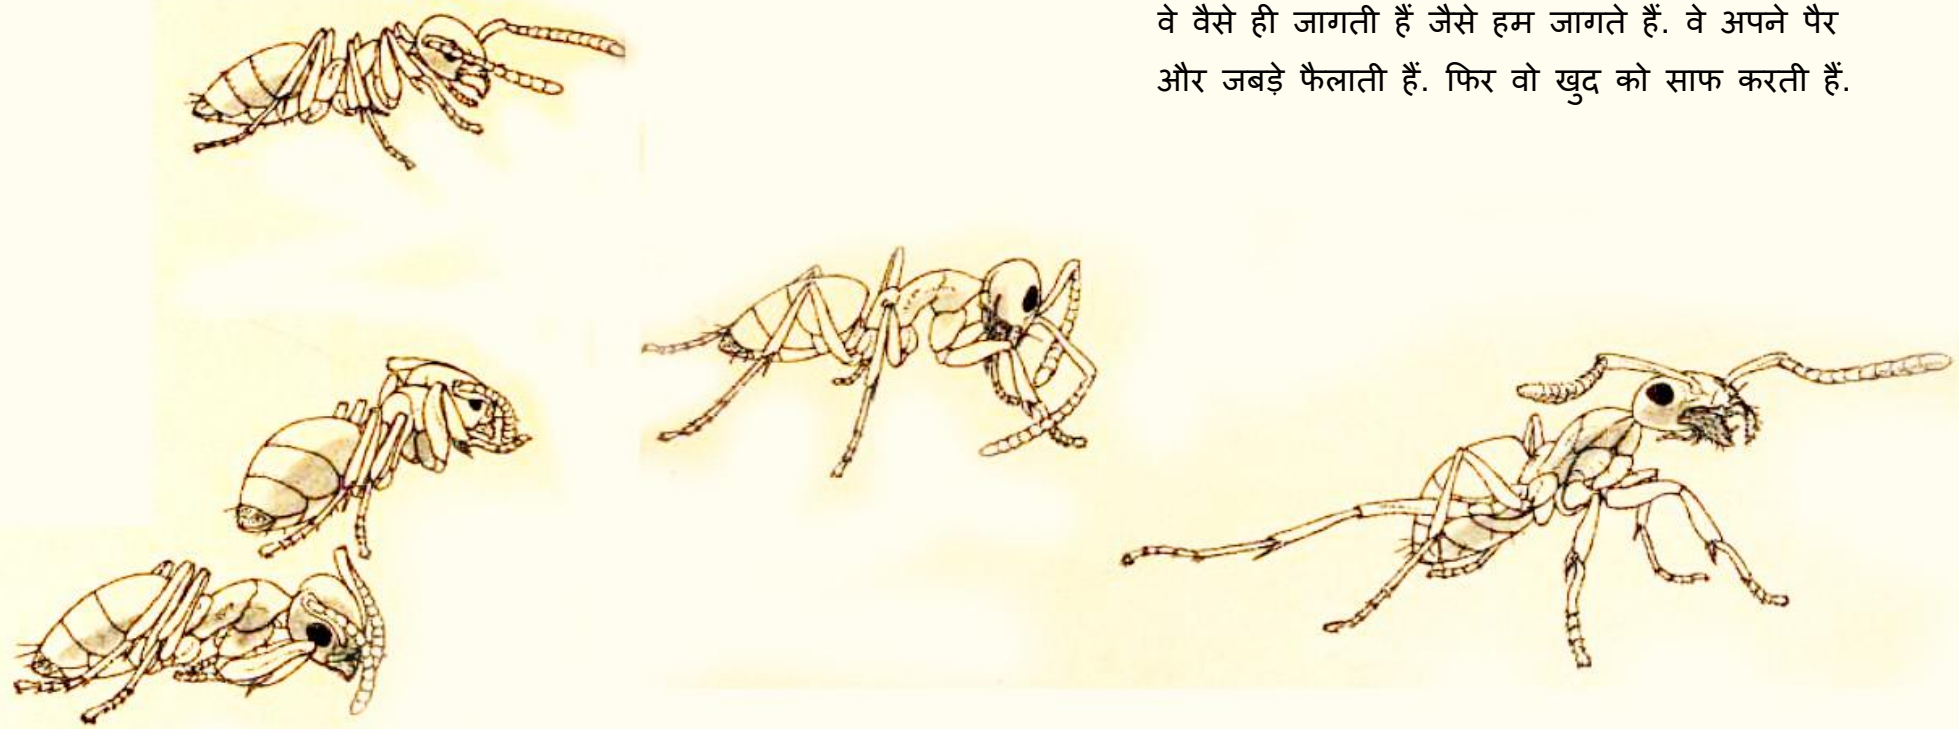 वे वैसे ही जागती हैं जैसे हम जागते हैं. वे अपने पैर
और जबड़े फैलाती हैं. फिर वो खुद को साफ करती हैं.